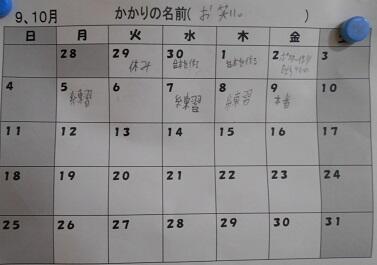 9、10月 かかりの名前(お笑い )
日 月 火 水 木 金
28 29 30 1 2 3
休み
4 5 6 7 8 9 10
練習 練習 練習 本番
11 12 13 14 15 16 17
18 19 20 21 22 23 24
25 26 27 28 29 30 31